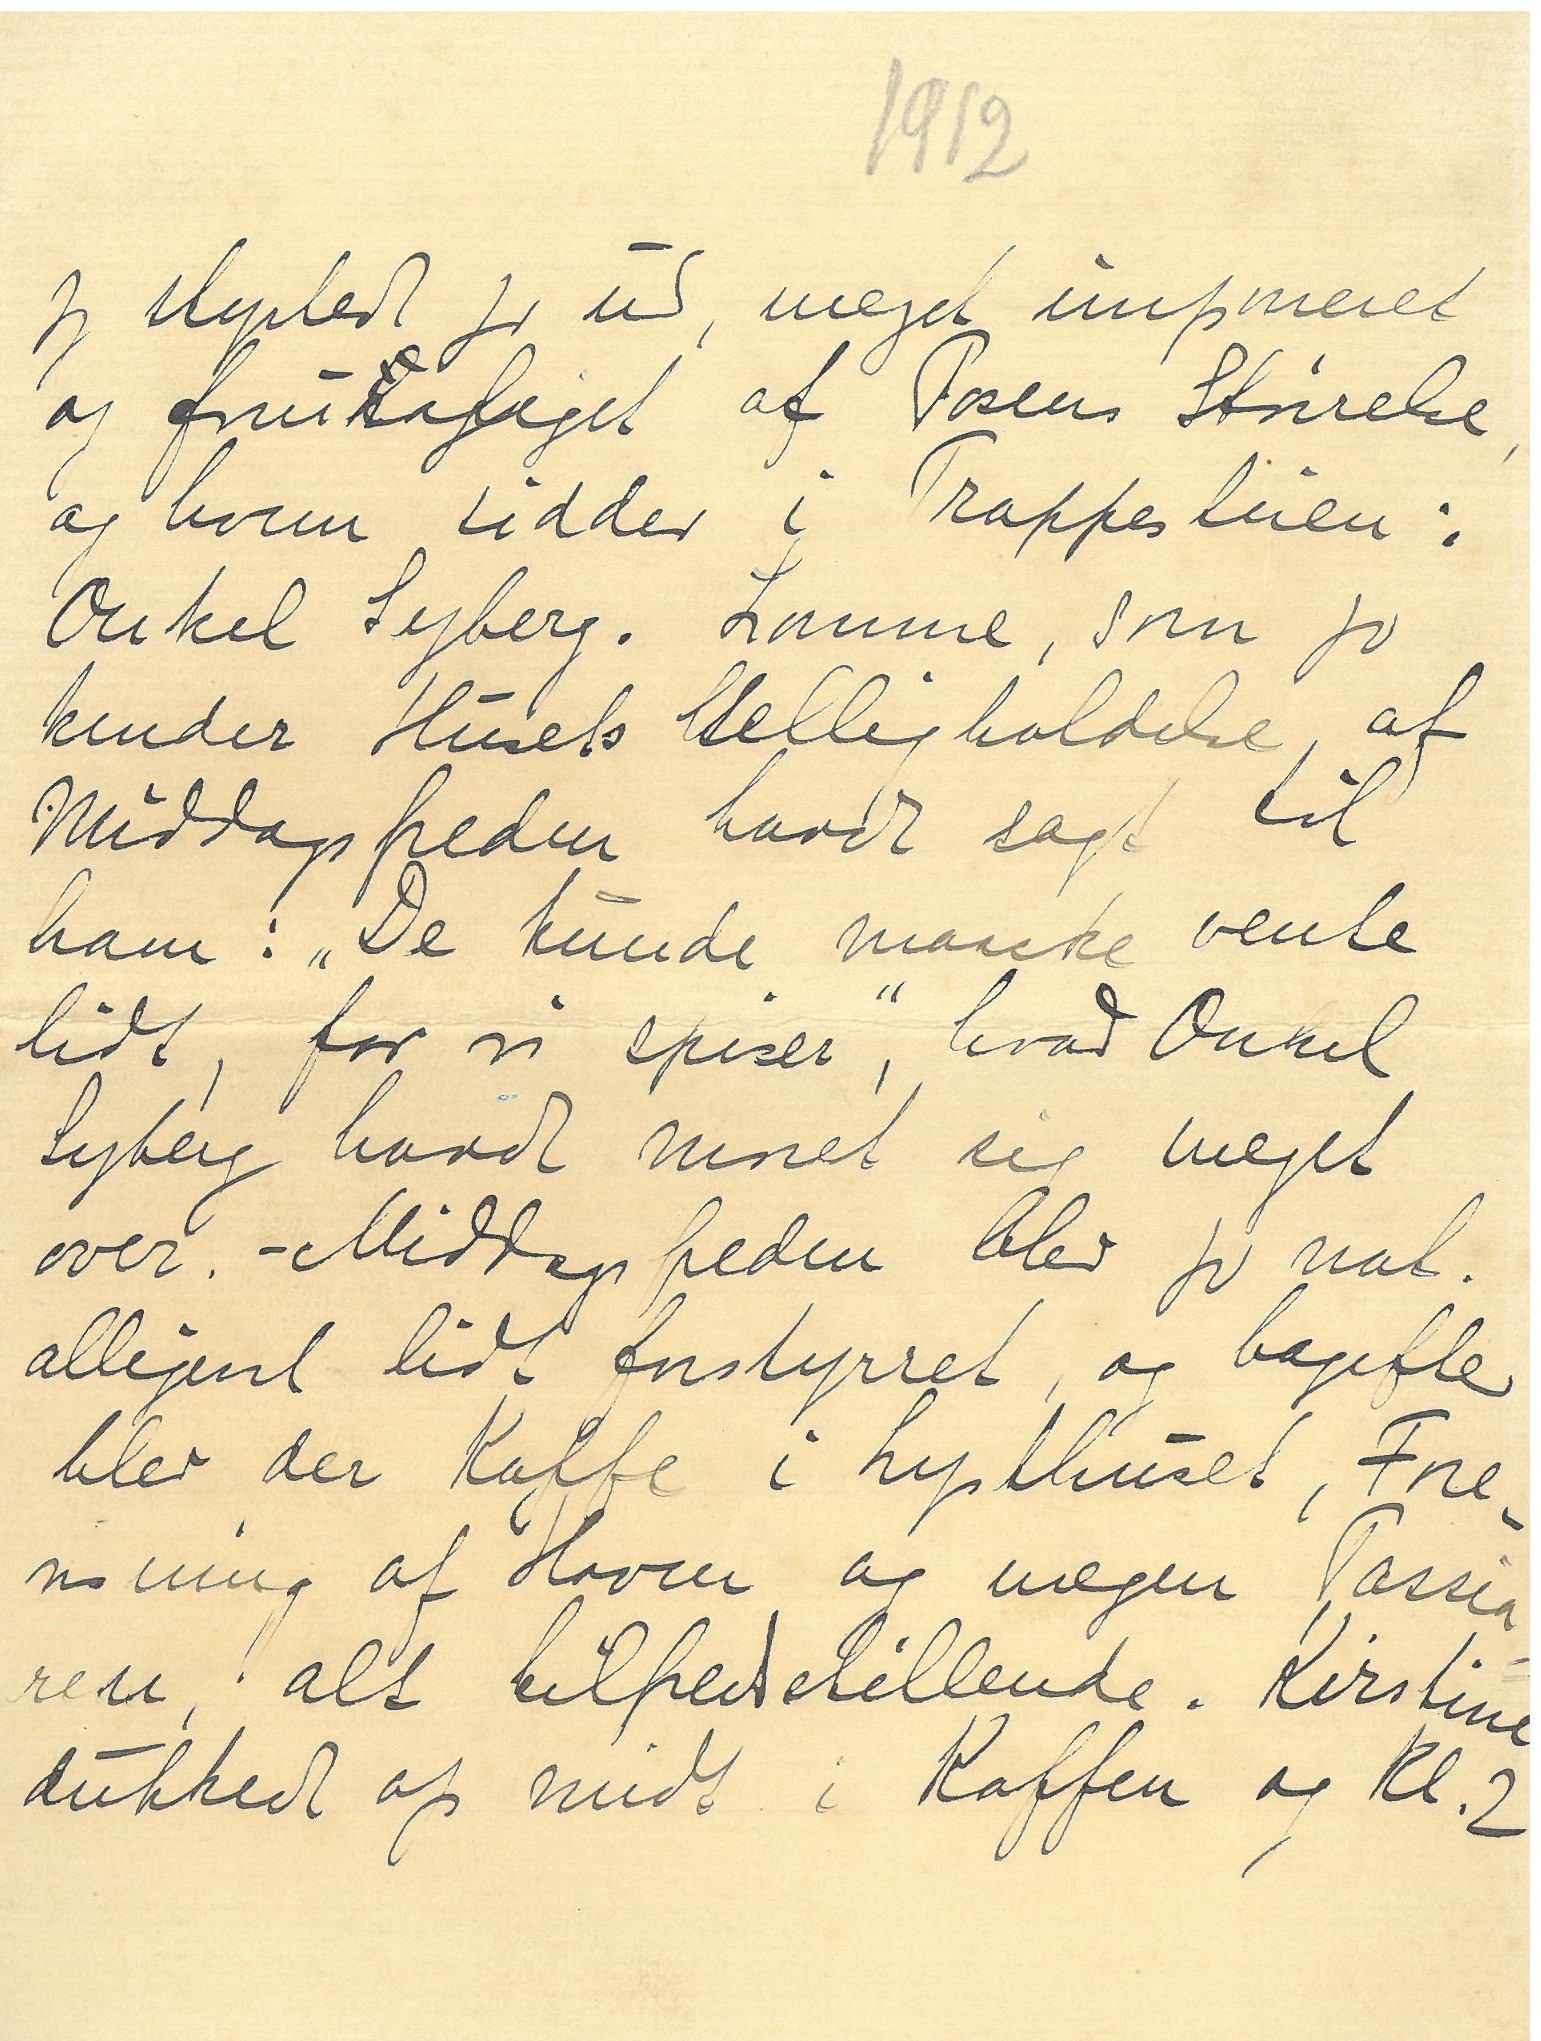 1912
jeg styrted jo ud, meget imponeret
og foruroliget af Posens Størrelse,
og hvem sidder i Trappestuen:
Onkel Syberg. Lomme, som jo
kender Husets Helligholdelse af
Middagsfreden havde sagt til
ham: „De kunde maaske vente
lidt, for vi spiser“, hvad Onkel
Syberg havde moret sig meget
over. - Middagsfreden blev jo nat.
alligevel lidt forstyrret, og bagefter
blev der Kaffe i Lysthuset, Fore-
visning af Haven og megen Passia-
ren, alt tilfredsstillende. Kirstine
dukkede op midt i Kaffen og Kl. 2